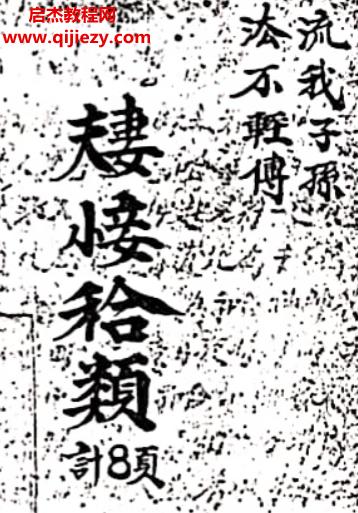 启杰教程网
www.qijiezy.com
流我子孫
法不輕傳
秴類
計8頁